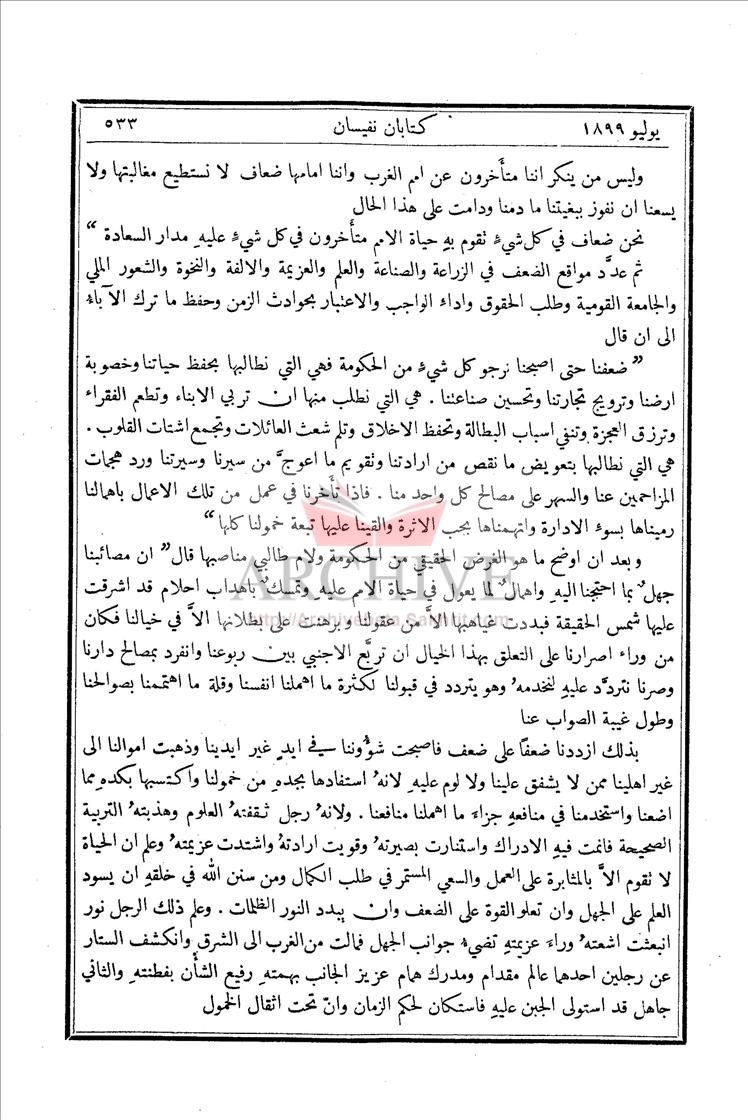 يوليو ١٨٩٩ كتابان نفيسان ٥٣٣
وليس من ينكر اننا متأَخرون عن امم الغرب واننا امامها ضعاف لا نستطيع مغالبتها ولا
يسعنا ان نفوز ببغيتنا ما دمنا ودامت على هذا الحال
نحن ضعاف في كل شيءٍ نقوم بهِ حياة الامم متأَخرون في كل شيءٍ عليهِ مدار السعادة "
ثم عدَّد مواقع الضعف في الزراعة والصناعة والعلم والعزيمة والالفة والنخوة والشعور الملي
والجامعة القومية وطلب الحقوق واداء الواجب والاعتبار بحوادث الزمن وحفظ ما ترك الآباءُ
الى ان قال
" ضعفنا حتى اصبحنا نرجو كل شيءٍ من الحكومة فهي التي نطالبها بحفظ حياتنا وخصوبة
ارضنا وترويج تجارتنا وتحسين صناعتنا . هي التي نطلب منها ان تربي الابناء وتطعم الفقراء
وترزق العجزة وتنفي اسباب البطالة وتحفظ الاخلاق وتلم شعث العائلات وتجمع اشتات القلوب .
هي التي نطالبها بتعويض ما نقص من ارادتنا ونقويم ما اعوجَّ من سيرنا وسيرتنا ورد هجمات
المزاحمين عنا والسهر على مصالح كل واحد منا . فاذا تأَخرنا في عمل من تلك الاعمال باهمالنا
رميناها بسوءِ الادارة واتهمناها بحب الاثرة والقينا عليها تبعة خمولنا كلها "
وبعد ان اوضح ما هو الغرض الحقيقي من الحكومة ولام طالبي مناصبها قال " ان مصائبنا
جهلٌ بما احتجنا اليهِ واهمالٌ لما يعول في حياة الامم عليهِ وتمسكٌ باهداب احلام قد اشرقت
عليها شمس الحقيقة فبددت غياهبها الاَّ من عقولنا وبرهنت على بطلانها الاَّ في خيالنا فكان
من وراء اصرارنا على التعلق بهذا الخيال ان تربَّع الاجنبي بين ربوعنا وانفرد بمصالح دارنا
وصرنا نتردَّد عليهِ لنخدمهُ وهو يتردد في قبولنا لكثرة ما اهملنا انفسنا وقلة ما اهتممنا بصوالحنا
وطول غيبة الصواب عنا
بذلك ازددنا ضعفًا على ضعف فاصبحت شؤُوننا في ايدٍ غير ايدينا وذهبت اموالنا الى
غير اهلينا ممن لا يشفق علينا ولا لوم عليهِ لانهُ استفادها بجدهِ من خمولنا واكتسبها بكدهِ مما
اضعنا واستخدمنا في منافعهِ جزاءَ ما اهملنا منافعنا . ولانهُ رجل ثقفتهُ العلوم وهذبتهُ التربية
الصحيحة فانمت فيهِ الادراك واستنارت بصيرتهُ وقويت ارادتهُ واشتدت عزيمتهُ وعلم ان الحياة
لا نقوم الاَّ بالمثابرة على العمل والسعي المستمر في طلب الكمال ومن سنن الله في خلقهِ ان يسود
العلم على الجهل وان تعلو القوة على الضعف وان يبدد النور الظلمات . وعلم ذلك الرجل نور
انبعثت اشعتهُ وراءَ عزيمتهِ تضيءُ جوانب الجهل فمالت من الغرب الى الشرق وانكشف الستار
عن رجلين احدهما عالم مقدام ومدرك همام عزيز الجانب بهمتهِ رفيع الشأْن بفطنتهِ والثاني
جاهل قد استولى الجبن عليهِ فاستكان لحكم الزمان وانّ تحت اثقال الخمول
ARCHIVE
http://Archivebeta.Sakhrit.com